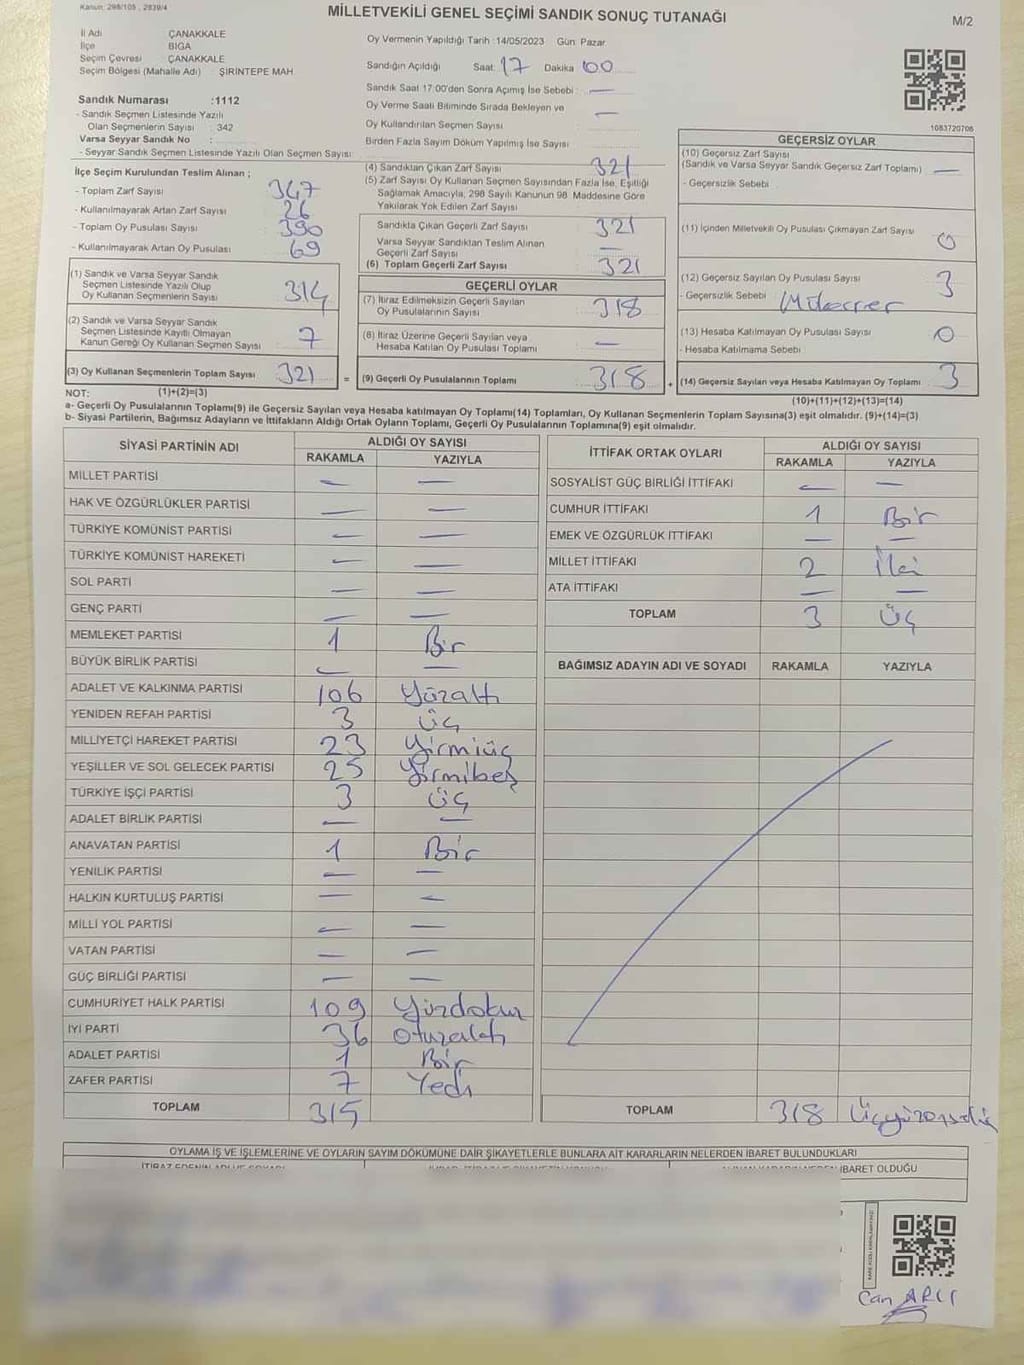 Kanun: 298/105 , 2839/4
MİLLETVEKİLİ GENEL SEÇİMİ SANDIK SONUÇ TUTANAĞI
M/2
İl Adı ÇANAKKALE
İlçe BİGA
Seçim Çevresi ÇANAKKALE
Seçim Bölgesi (Mahalle Adı) : ŞİRİNTEPE MAH
Sandık Numarası :1112
- Sandık Seçmen Listesinde Yazılı
Olan Seçmenlerin Sayısı : 342
Varsa Seyyar Sandık No :
- Seyyar Sandık Seçmen Listesinde Yazılı Olan Seçmen Sayısı:
Oy Vermenin Yapıldığı Tarih :14/05/2023 Gün: Pazar
Sandığın Açıldığı Saat: 17 Dakika 00
Sandık Saat 17:00'den Sonra Açımış İse Sebebi : —
Oy Verme Saati Bitiminde Sırada Bekleyen ve
Oy Kullandırılan Seçmen Sayısı —
Birden Fazla Sayım Döküm Yapılmış İse Sayısı
1083720706
İlçe Seçim Kurulundan Teslim Alınan ;
- Toplam Zarf Sayısı 347
- Kullanılmayarak Artan Zarf Sayısı 26
- Toplam Oy Pusulası Sayısı 390
- Kullanılmayarak Artan Oy Pusulası 69
(1) Sandık ve Varsa Seyyar Sandık
Seçmen Listesinde Yazılı Olup
Oy Kullanan Seçmenlerin Sayısı 314
(2) Sandık ve Varsa Seyyar Sandık
Seçmen Listesinde Kayıtlı Olmayan
Kanun Gereği Oy Kullanan Seçmen Sayısı 7
(3) Oy Kullanan Seçmenlerin Toplam Sayısı 321
(1)+(2)=(3)
(4) Sandıktan Çıkan Zarf Sayısı 321
(5) Zarf Sayısı Oy Kullanan Seçmen Sayısından Fazla İse, Eşitliği
Sağlamak Amacıyla, 298 Sayılı Kanunun 98. Maddesine Göre
Yakılarak Yok Edilen Zarf Sayısı
Sandıkta Çıkan Geçerli Zarf Sayısı 321
Varsa Seyyar Sandıktan Teslim Alınan
Geçerli Zarf Sayısı —
(6) Toplam Geçerli Zarf Sayısı 321
GEÇERLİ OYLAR
(7) İtiraz Edilmeksizin Geçerli Sayılan
Oy Pusulalarının Sayısı 318
(8) İtiraz Üzerine Geçerli Sayılan veya
Hesaba Katılan Oy Pusulası Toplamı —
= (9) Geçerli Oy Pusulalarının Toplamı 318 +
GEÇERSİZ OYLAR
(10) Geçersiz Zarf Sayısı
(Sandık ve Varsa Seyyar Sandık Geçersiz Zarf Toplamı) —
- Geçersizlik Sebebi
(11) İçinden Milletvekili Oy Pusulası Çıkmayan Zarf Sayısı 0
(12) Geçersiz Sayılan Oy Pusulası Sayısı 3
- Geçersizlik Sebebi Mükerrer
(13) Hesaba Katılmayan Oy Pusulası Sayısı 0
- Hesaba Katılmama Sebebi
(14) Geçersiz Sayılan veya Hesaba Katılmayan Oy Toplamı 3
(10)+(11)+(12)+(13)=(14)
NOT:
a- Geçerli Oy Pusulalarının Toplamı(9) ile Geçersiz Sayılan veya Hesaba katılmayan Oy Toplamı(14) Toplamları, Oy Kullanan Seçmenlerin Toplam Sayısına(3) eşit olmalıdır. (9)+(14)=(3)
b- Siyasi Partilerin, Bağımsız Adayların ve İttifakların Aldığı Ortak Oyların Toplamı, Geçerli Oy Pusulalarının Toplamına(9) eşit olmalıdır.
SİYASİ PARTİNİN ADI ALDIĞI OY SAYISI
RAKAMLA YAZIYLA
MİLLET PARTİSİ — —
HAK VE ÖZGÜRLÜKLER PARTİSİ — —
TÜRKİYE KOMÜNİST PARTİSİ — —
TÜRKİYE KOMÜNİST HAREKETİ — —
SOL PARTİ — —
GENÇ PARTİ — —
MEMLEKET PARTİSİ 1 Bir
BÜYÜK BİRLİK PARTİSİ — —
ADALET VE KALKINMA PARTİSİ 106 Yüzaltı
YENİDEN REFAH PARTİSİ 3 Üç
MİLLİYETÇİ HAREKET PARTİSİ 23 Yirmiüç
YEŞİLLER VE SOL GELECEK PARTİSİ 25 Yirmibeş
TÜRKİYE İŞÇİ PARTİSİ 3 Üç
ADALET BİRLİK PARTİSİ — —
ANAVATAN PARTİSİ 1 Bir
YENİLİK PARTİSİ — —
HALKIN KURTULUŞ PARTİSİ — —
MİLLİ YOL PARTİSİ — —
VATAN PARTİSİ — —
GÜÇ BİRLİĞİ PARTİSİ — —
CUMHURİYET HALK PARTİSİ 109 Yüzdokuz
İYİ PARTİ 36 Otuzaltı
ADALET PARTİSİ 1 Bir
ZAFER PARTİSİ 7 Yedi
TOPLAM 315
İTTİFAK ORTAK OYLARI ALDIĞI OY SAYISI
RAKAMLA YAZIYLA
SOSYALİST GÜÇ BİRLİĞİ İTTİFAKI — —
CUMHUR İTTİFAKI 1 Bir
EMEK VE ÖZGÜRLÜK İTTİFAKI — —
MİLLET İTTİFAKI 2 İki
ATA İTTİFAKI — —
TOPLAM 3 Üç
BAĞIMSIZ ADAYIN ADI VE SOYADI RAKAMLA YAZIYLA
TOPLAM 318 Üçyüzonsekiz
OYLAMA İŞ VE İŞLEMLERİNE VE OYLARIN SAYIM DÖKÜMÜNE DAİR ŞİKAYETLERLE BUNLARA AİT KARARLARIN NELERDEN İBARET BULUNDUKLARI
İBARET OLDUĞU
Can ARCI